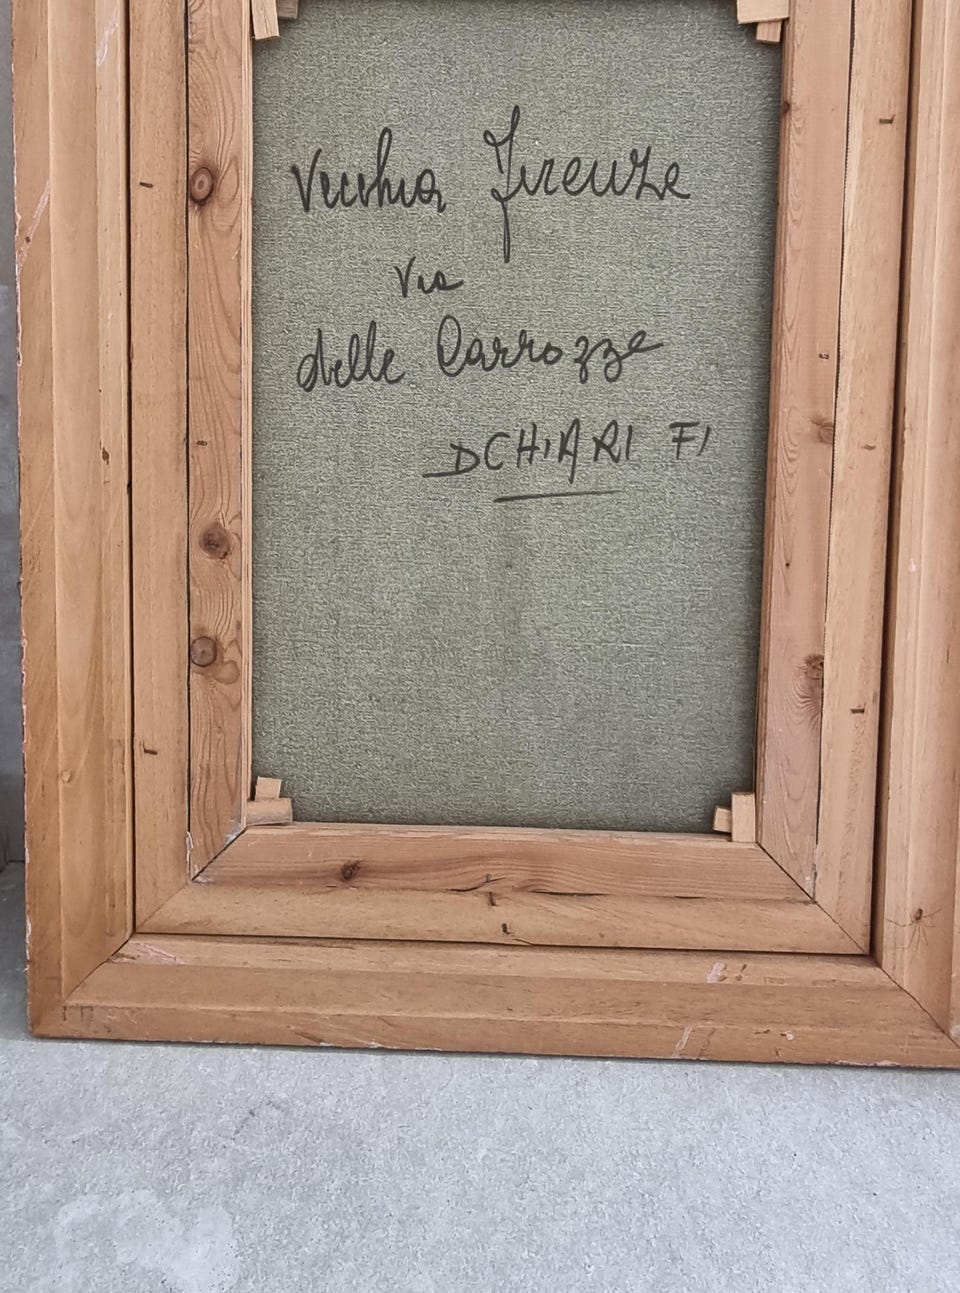 Vecchia Firenze
Via
delle Carrozze
DCHIARI FI